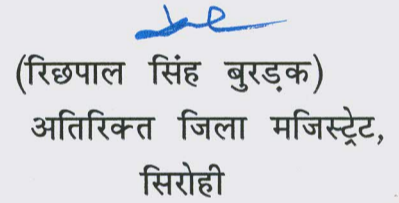 (रिछपाल सिंह बुरड़क)
अतिरिक्त जिला मजिस्ट्रेट,
सिरोही